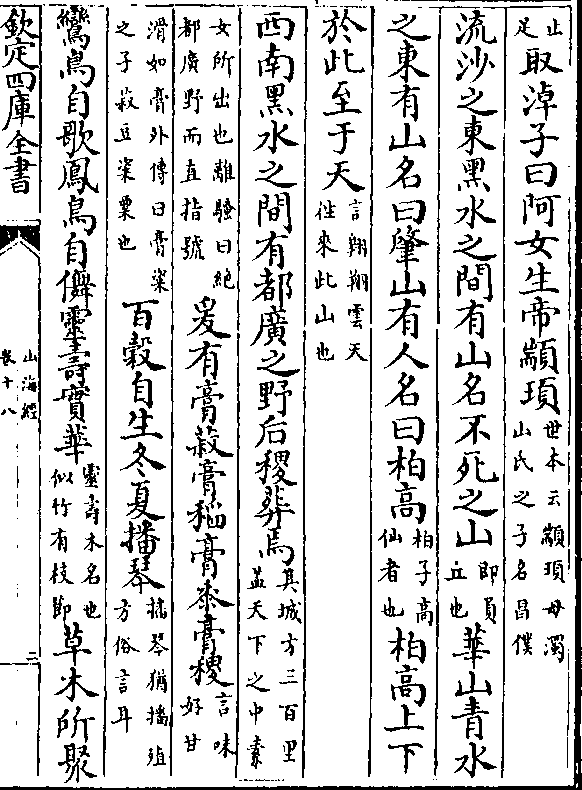 止足取淖子曰阿女生帝顓頊世本云顓頊母濁山氏之子名昌僕
流沙之東黑水之間有山名不死之山即員丘也華山青水
之東有山名曰肇山有人名曰柏高柏子高仙者也柏高上下
於此至于天言翱翔雲天往來此山也
西南黑水之間有都廣之野后稷葬焉其城方三百里蓋天下之中素
女所出也離騷曰絶都廣野而直指號爰有膏菽膏稻膏黍膏稷言味好甘
滑如膏外傳曰膏粱之子菽豆粱粟也百穀自生冬夏播琴播琴猶播殖方俗言耳
鸞鳥自歌鳳鳥自儛靈壽實華靈壽木名也似竹有枝節草木所聚
欽定四庫全書
山海經
卷十八
二